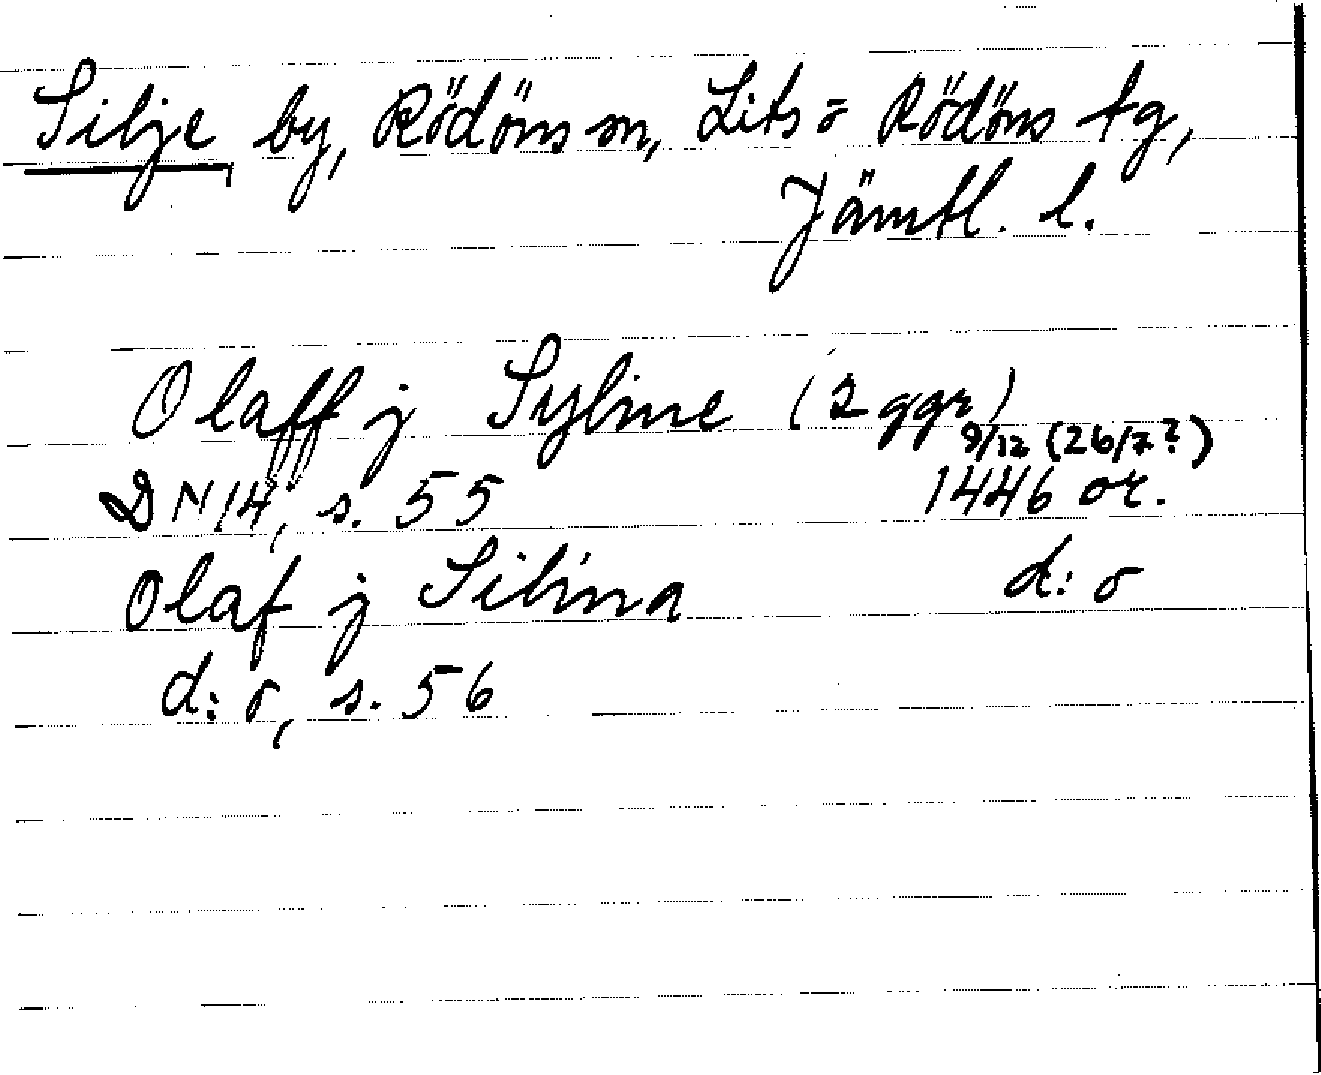 Silje by, Rödöns sn, Lits o Rödöns tg,
Jämtl. l.
Olaff j Sylime (2 ggr)
9/12 (26/7?)
DN 14, s. 55 1446 or.
Olaf j Silina d:o
d:o, s. 56